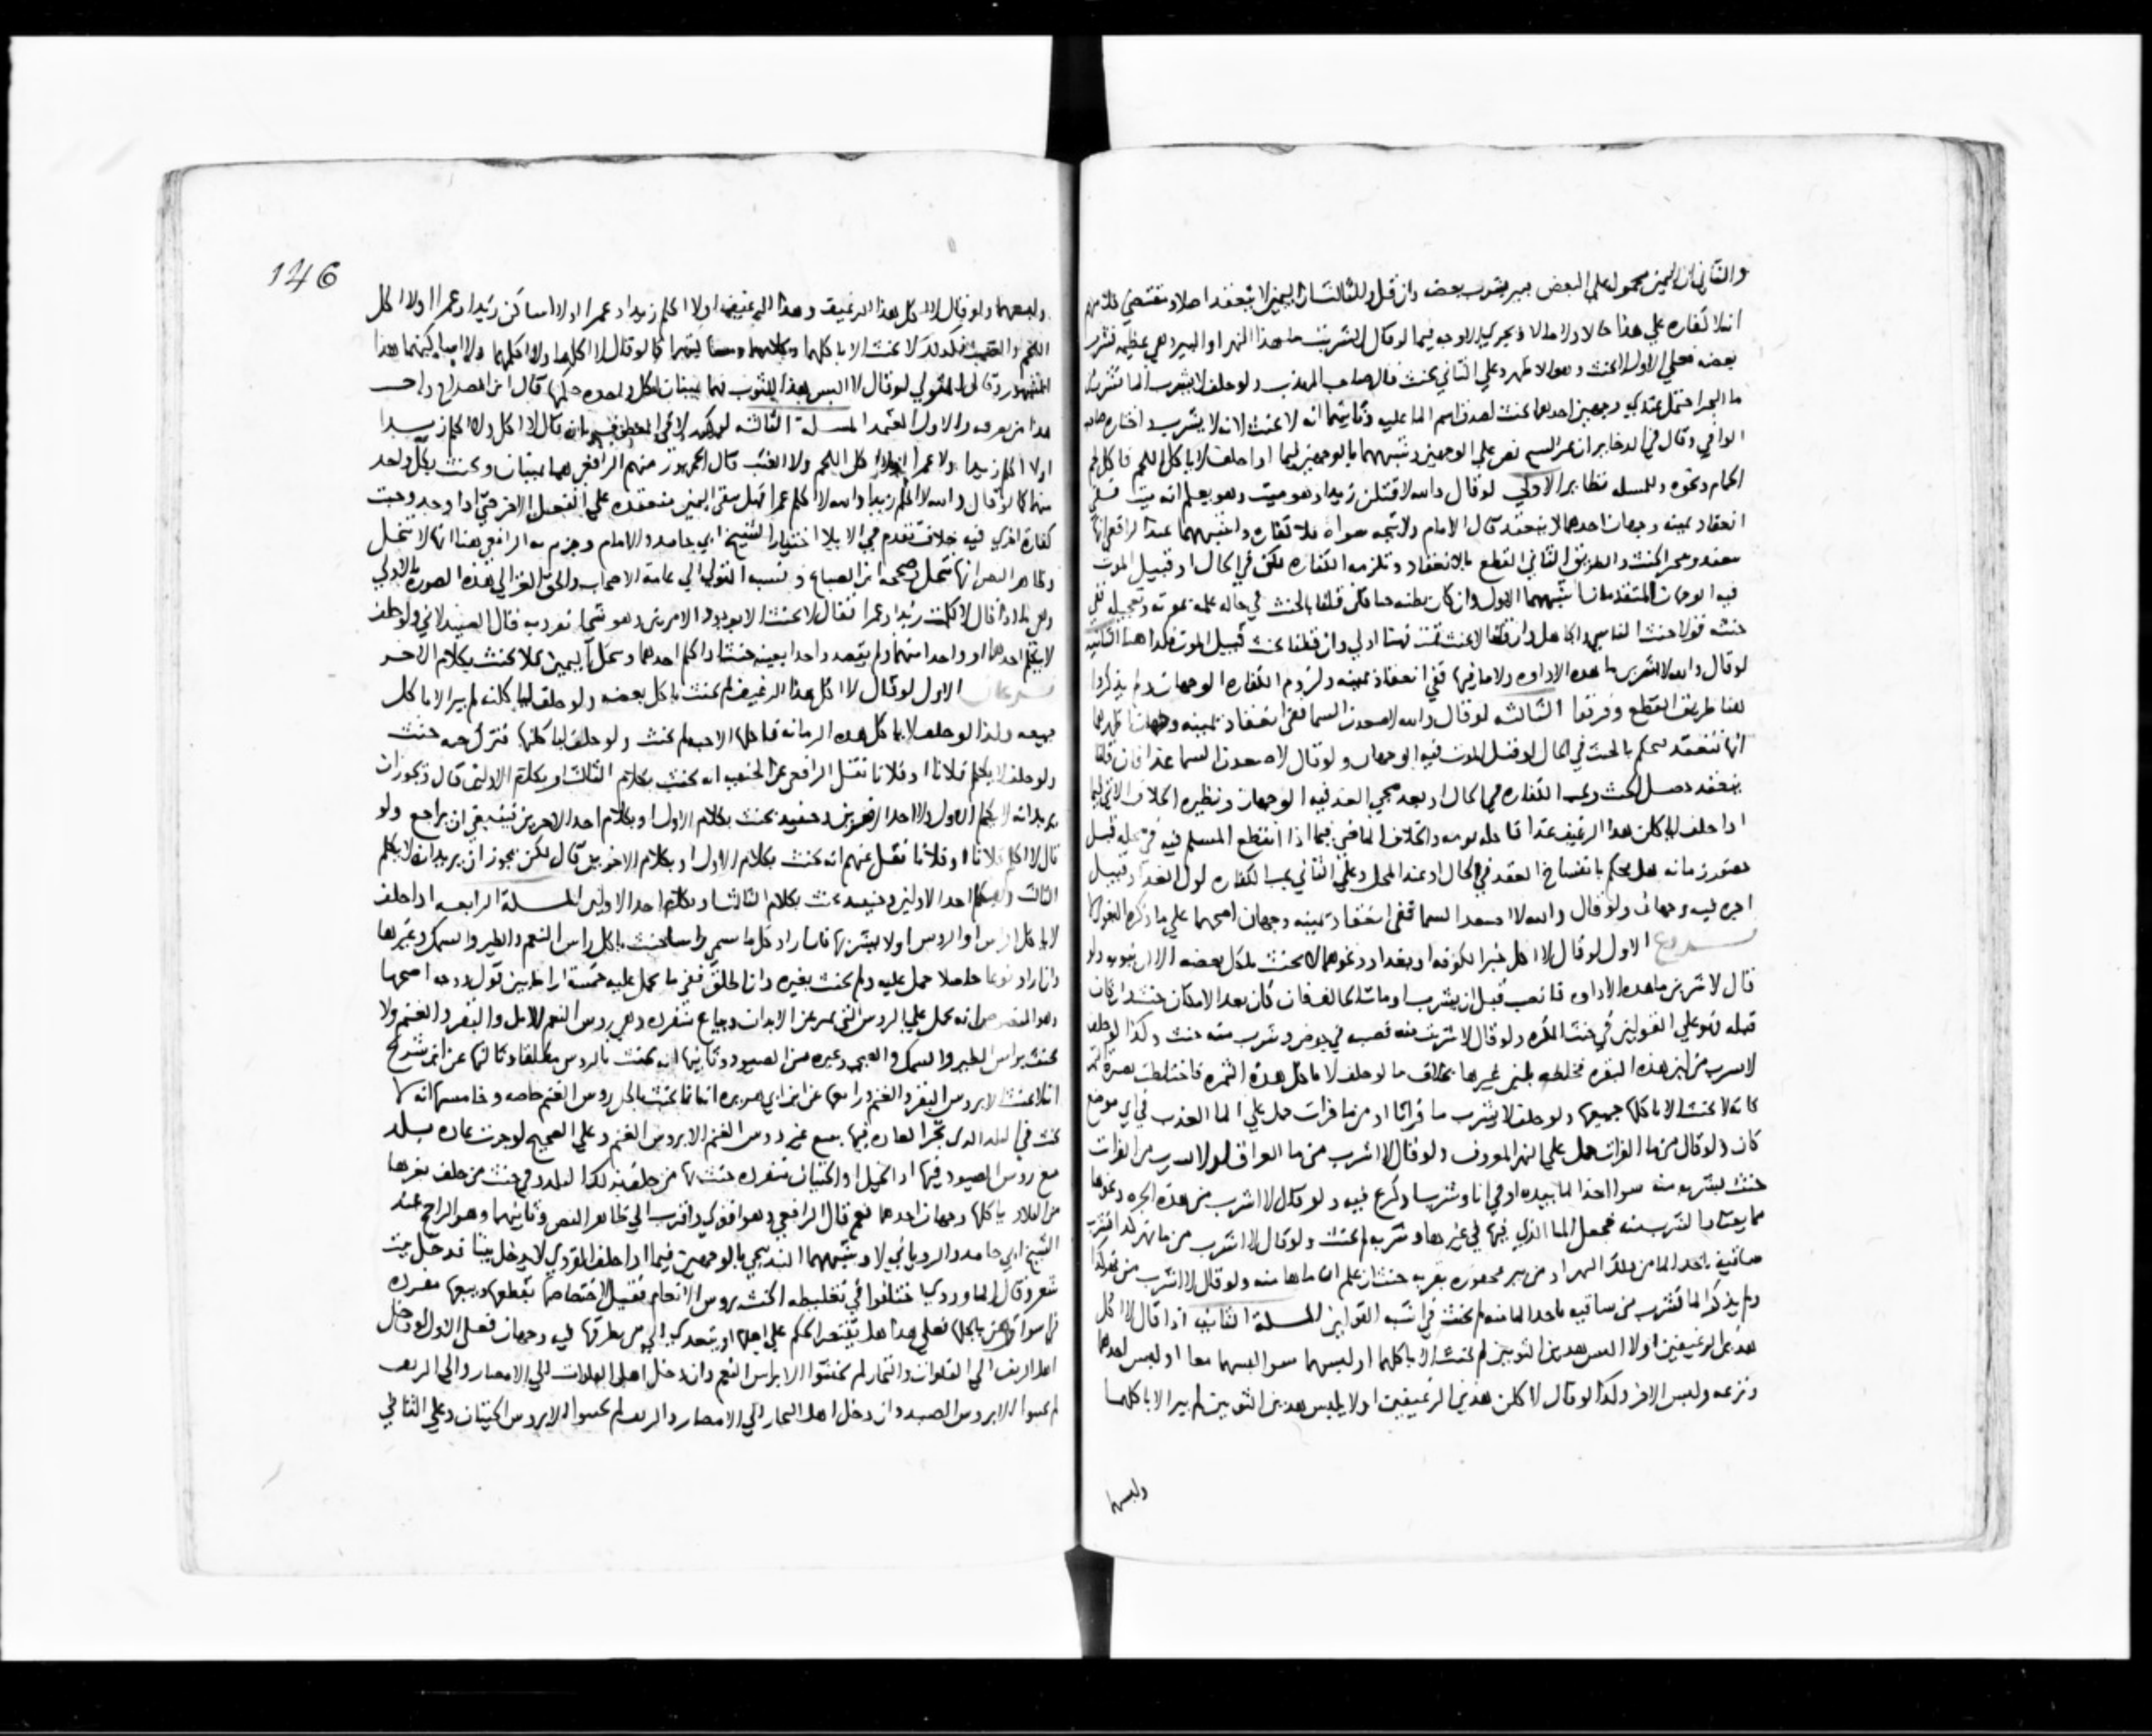 والثاني ان اليمين محمولة على البعض فيبر بشرب بعضه وان قل والثالث ان اليمين لا ينعقد اصلا ومقتضى
انه لا كفاره على هذا حالا ولا مالا ويجري الاوجه فيما لو قال لاشربن ما هذا النهر او البير وهي عظيمه فشرب
بعضه فعلى الاول لا يحنث وهو الاظهر وعلى الثاني يحنث قال صاحب المهذب ولو حلف لا يشرب الما فشرب من
ما البحر احتمل عندي وجهين احدهما يحنث لصدق اسم الما عليه وثانيهما انه لا يحنث لانه لا يشرب واختاره صاحب
الوافي وقال في الدخاير ان نص على الوجهين وشبههما بالوجهين فيما اذا حلف لا ياكل اللحم فاكل لحم
الحمام ونحوه وللمسله نظاير الاولى لو قال والله لاقتلن زيدا وهو ميت وهو يعلم انه ميت ففي
انعقاد يمينه وجهان احدهما لا ينعقد قال الامام ولا يتجه سواه فلا كفاره واشبههما عند الرافعي انها
منعقده الحنث والطريق الثاني القطع بالانعقاد وتلزمه الكفاره لكن في الحال او قبيل الموت
فيه الوجهان المتقدمان اشبههما الاول وان كان يظنه حيا فان قلنا بالحنث في حاله علمه بموته
حنثه قولا حنث الناسي والجاهل وان قلنا لا يحنث ثمت فهنا اولى وان قلنا يحنث قبيل الموت فكذا هنا الثانيه
لو قال والله لاشربن ما هذه الاداوه ولا ما فيها ففي انعقاد يمينه ولزوم الكفاره الوجهان ولم يذكروا
هنا طريق القطع وفرقوا الثالثه لو قال والله لاصعدن السما ففي انعقاد يمينه وجهان اظهرهما
انها تنعقد يحكم بالحنث في الحال او قبيل الموت فيه الوجهان ولو قال لاصعدن السما غدا فان قلنا
ينعقد حصل الحنث وتجب الكفاره في الحال او بعد مجي الغد فيه الوجهان ونظيره الخلاف الاتي فيما
اذا حلف لياكلن هذا الرغيف غدا فاكله يومه والخلاف الماضي فيما اذا انقطع المسلم فيه في محله قبل
هل يحكم بانفساخ العقد في الحال او عند المحل وعلى الثاني تجب الكفاره اول الغد او قبيل
اخره فيه وجهان ولو قال والله لا اصعد السما ففي انعقاد يمينه وجهان اصحهما على ما ذكره
فروع الاول لو قال لا اكل خبز الكوفه او بغداد ونحوهما لا يحنث باكل بعضه الا ان ينويه ولو
قال لاشربن ما هذه الاداوه فانصب قبل ان يشرب او مات الحالف فان كان بعد الامكان حنث وان كان
قبله فهو على القولين في حنث المكره ولو قال لاشربت منه فصب في حوض وشرب منه حنث وكذا لو حلف
لا يشرب من لبن هذه البقره فخلطه بلبن غيرها بخلاف ما لو حلف لا ياكل هذه التمره فاختلطت بصبره
فانه لا يحنث الا باكلها جميعها ولو حلف لا يشرب ما فراتا او من ما فرات حمل على الما العذب في اي موضع
كان ولو قال من ما الفرات حمل على النهر المعروف ولو قال لا اشرب من ما الفرات او لا اشرب من الفرات
حنث بشربه منه سوا اخذ الما بيده او في انا وشرب او كرع فيه ولو قال لا اشرب من هذه الجره ونحوها
مما يعتاد الشرب منه فجعل الما الذي فيها في غيرها وشربه لم يحنث ولو قال لا اشرب من ما نهر كذا فشرب
ساقيه تاخذ الما من ذلك النهر او من بير محفوره بقربه حنث ان علم ان ماها منه ولو قال لا اشرب من نهر كذا
ولم يذكر الما فشرب من ساقيه تاخذ الما منه لم يحنث في اشبه القولين المسلة الثانيه اذا قال لا اكل
هذين الرغيفين او لا البس هذين الثوبين لم يحنث الا باكلهما او لبسهما سوا لبسهما معا او لبس احدهما
ونزعه ولبس الاخر وكذا لو قال لاكلن هذين الرغيفين او لا يلبس هذين الثوبين لم يبر الا باكلهما
ولبسهما
146
ولبسهما ولو قال لا اكل هذا الرغيف وهذا الرغيف او لا اكلم زيدا وعمرا او لا اساكن زيدا وعمرا او لا اكل
اللحم والعنب فكذلك لا يحنث الا باكلهما كما لو قال لا اكلهما ولا اكلمهما ولا اساكنهما هذا
المشهور وقال المتولي لو قال لا البس هذا الثوب فهما يمينان لكل واحده حكمها قال ابن الصلاح
هذا من والاول المعتمد المسلة الثالثه قال لا اكل ولا اكلم زيدا
او لا اكلم زيدا ولا عمرا او لا اكل اللحم ولا العنب قال الجمهور منهم الرافعي هما يمينان ويحنث بكل واحد
منهما كما لو قال والله لا اكلم زيدا والله لا اكلم عمرا فهل تبقى اليمين منعقده على الفعل الاخر حتى اذا وجد وجبت
كفاره اخرى فيه خلاف تقدم في الايلا اختيار الشيخ ابي حامد والامام وجزم به الرافعي هنا انها لا تنحل
وظاهر النص انها تنحل وصححه ابن الصباغ ونسبه المتولي الى عامة الاصحاب والحق الغزالي هذه الصوره بالاولى
وهي ما اذا قال لا كلمت زيدا وعمرا فقال لا يحنث الا بوجود الامرين وهو شي تفرد به قال الصيدلاني ولو حلف
لا يكلم احدهما او واحدا منهما ولم يقصد واحدا بعينه حنث اذا كلم احدهما وتنحل اليمين فلا يحنث بكلام الاخر
فرعان الاول لو قال لا اكل هذا الرغيف لم يحنث باكل بعضه ولو حلف لياكلنه لم يبر الا باكل
جميعه وكذا لو حلف لا ياكل هذه الرمانه فاكلها الا حبه لم يحنث ولو حلف لياكلنها فترك حبه حنث
ولو حلف لا يكلم فلانا او فلانا نقل الرافعي عن الحنفيه انه يحنث بكلام الثالث او بكلام الاولين قال ويجوز ان
يريد انه لا يكلم الاول ولا احد الاخرين وحينيد يحنث بكلام الاول او بكلام احد الاخرين فينبغي ان يراجع ولو
قال لا اكلم فلانا او فلانا نقل عنهم انه يحنث بكلام الاول او بكلام الاخرين قال لكن يجوز ان يريد انه لا يكلم
الثالث ولا يكلم احد الاولين وحينيد يحنث بكلام الثالث او بكلام احد الاولين المسلة الرابعه اذا حلف
لا ياكل الراس او الروس او لا يشتريها فان اراد كل ما سمي راسا حنث باكل راس النعم والطير والسمك وغيرها
وان اراد نوعا خاصا حمل عليه ولم يحنث بغيره وان اطلق ففي ما يحمل عليه خمسة اوجه اصحها
وهو المنصوص انه يحمل على الروس التي تميز عن الابدان وتباع منفرده وهي روس النعم الابل والبقر والغنم ولا
يحنث براس الطير والسمك والظبي وغيره من الصيود وثانيها انه يحنث بالروس مطلقا وثالثها عن ابن سريج
انه لا يحنث الا بروس البقر والغنم ورابعها عن ابن ابي هريره انه انما يحنث باكل روس الغنم خاصه وخامسها انه لا
يحنث في البلد الذي تجر العاده فيها ببيع غير روس الغنم الا بروس الغنم وعلى الصحيح لو جرت عاده ببلد
ببيع روس الصيود فيها او الخيل او الحيتان منفرده حنث بها من حلف بذلك البلد وفي حنث من حلف بغيرها
من البلاد باكلها وجهان احدهما نعم قال الرافعي وهو اقوى واقرب الى ظاهر النص وثانيهما وهو الراجح عند
الشيخ ابي حامد والروياني لا وشبههما البندنيجي بالوجهين فيما اذا حلف القروي لا يدخل بيتا فدخل بيت
شعر وقال الماوردي اختلفوا في تغليظه الحنث بروس الانعام فقيل لاختصاصها بقطعها وبيعها مفرده
فعلى هذا هل يقتصر الحكم على اهلها او يتعدى الى من يطرقها فيه وجهان فعلى الاول لو دخل
اهل الريف الى الفلوات والبحار لم يحنثوا الا براس النعم وان دخل اهل الفلوات الى الامصار والى الريف
لم يحنثوا الا بروس الصيد وان دخل اهل البحار الى الامصار والريف لم يحنثوا الا بروس الحيتان وعلى الثاني